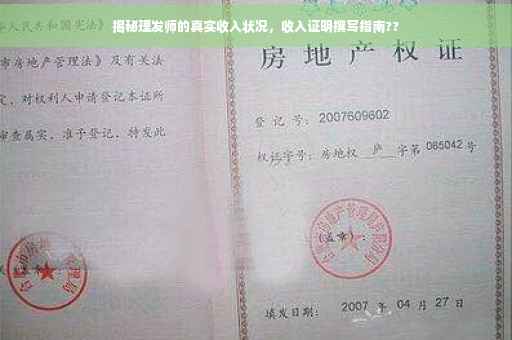 揭秘理发师的真实收入状况，收入证明撰写指南??
人民共和国宪法》
市房地产管理法》及有关法
定，对权利人申请登记本证所
审查属实，准予登记，特发此
房地产权
登 记 号：2007609602
权证字号：房地权 庐 字第 085042 号
(盖章)：
填发日期：2007 年 04 月 27 日